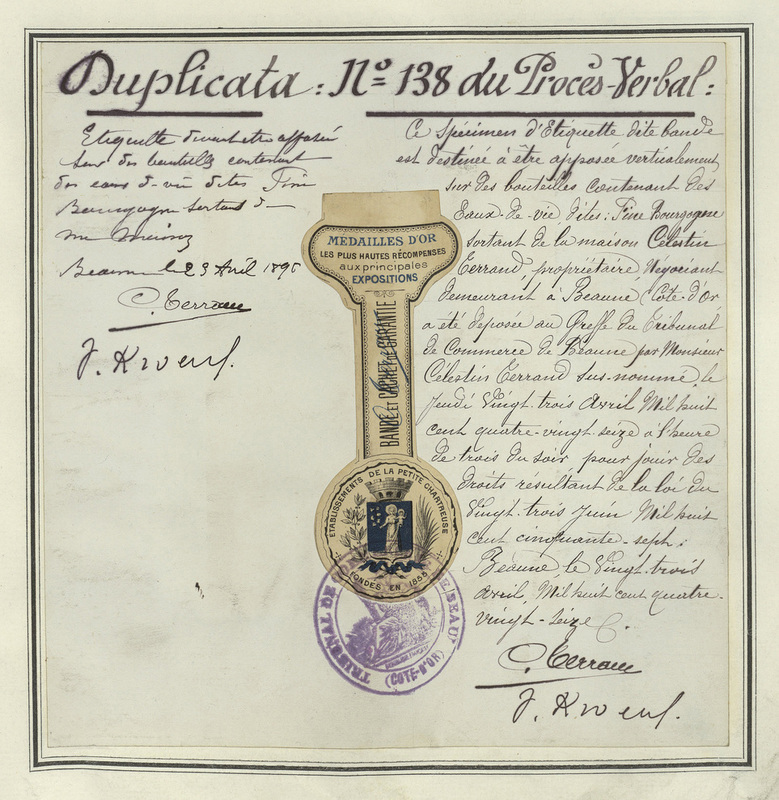 Duplicata : Nº 138 du Procès-Verbal :
Etiquette devant etre apposée
sur des bouteilles contenant
des eaux de vie dites Fine
Bourgogne sortant de
ma maison
Beaune le 23 Avril 1896
C. Terrand
MEDAILLES D'OR
LES PLUS HAUTES RÉCOMPENSES
aux principales
EXPOSITIONS
BANDE ET CACHET DE GARANTIE
ETABLISSEMENTS DE LA PETITE CHARTREUSE
FONDÉS EN 1855
TRIBUNAL DE BEAUNE
(COTE-D'OR)
Ce spécimen d'Etiquette dite bande
est destinée à être apposée verticalement
sur des bouteilles contenant des
Eaux-de-vie, dites : Fine Bourgogne
sortant de la maison Célestin
Terrand, propriétaire, Négociant
demeurant à Beaune (Côte-d'Or
a été déposée au Greffe du Tribunal
de Commerce de Beaune par Monsieur
Célestin Terrand sus-nommé, le
Jeudi Vingt-trois Avril Mil huit
cent quatre-vingt-seize à l'heure
de trois du soir pour jouir des
droits résultant de la loi du
Vingt-trois Juin Mil huit
cent cinquante-sept :
Beaune le Vingt-trois
Avril, Mil huit cent quatre-
vingt-seize
C. Terrand